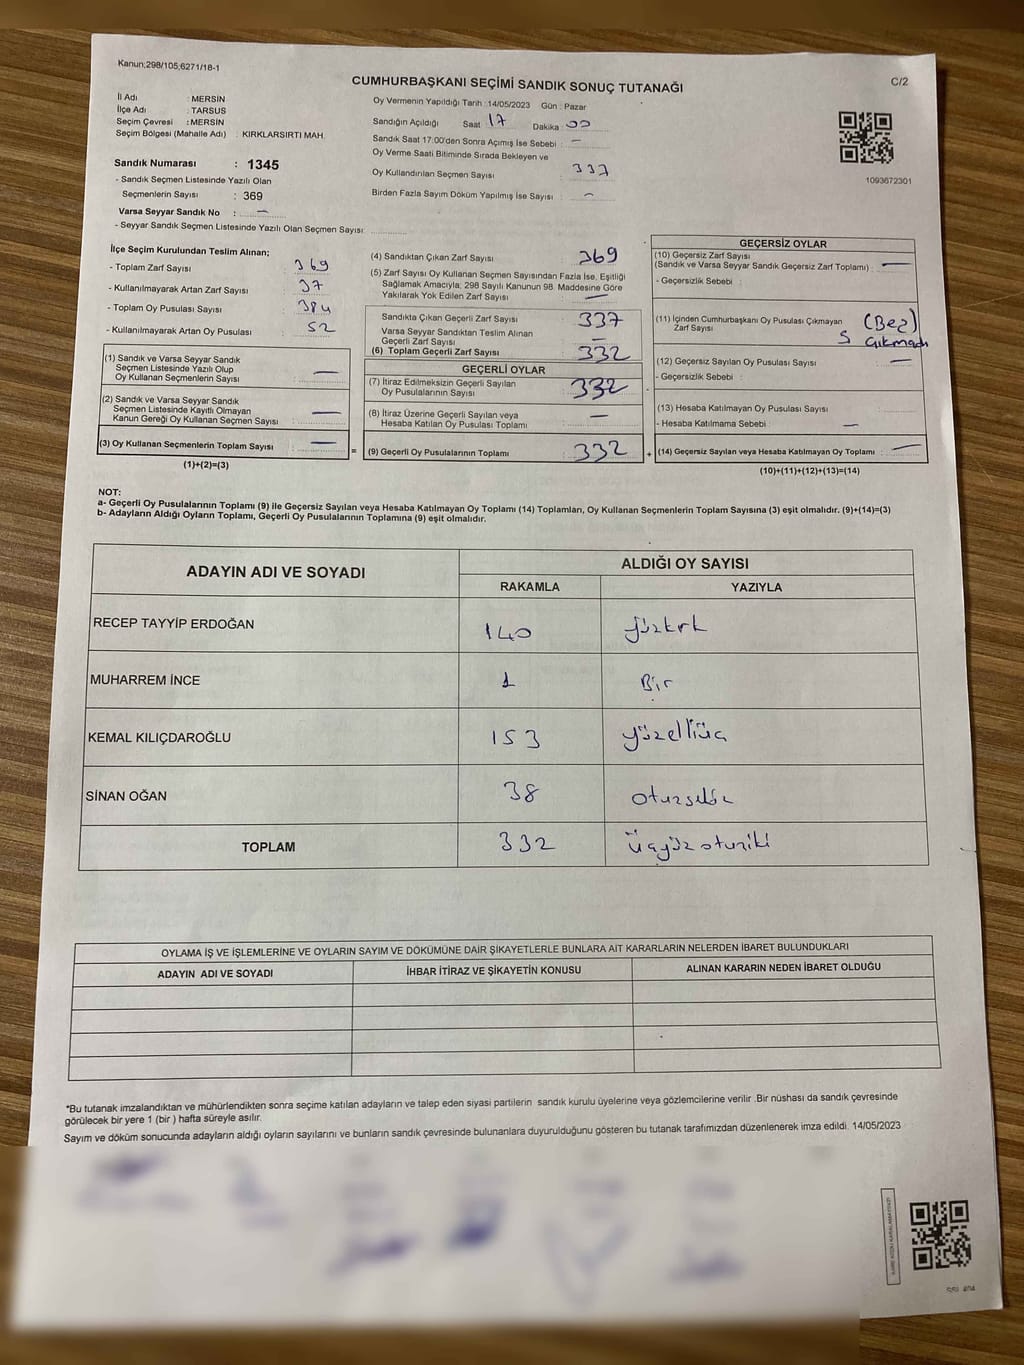 Kanun;298/105,6271/18-1
CUMHURBAŞKANI SEÇİMİ SANDIK SONUÇ TUTANAĞI
C/2
İl Adı : MERSİN
İlçe Adı : TARSUS
Seçim Çevresi : MERSİN
Seçim Bölgesi (Mahalle Adı) : KIRKLARSIRTI MAH.
Sandık Numarası : 1345
- Sandık Seçmen Listesinde Yazılı Olan
Seçmenlerin Sayısı : 369
Varsa Seyyar Sandık No : —
- Seyyar Sandık Seçmen Listesinde Yazılı Olan Seçmen Sayısı:
Oy Vermenin Yapıldığı Tarih :14/05/2023 Gün : Pazar
Sandığın Açıldığı Saat 17 Dakika : 00
Sandık Saat 17:00'den Sonra Açımış İse Sebebi : —
Oy Verme Saati Bitiminde Sırada Bekleyen ve
Oy Kullandırılan Seçmen Sayısı : 337
Birden Fazla Sayım Döküm Yapılmış İse Sayısı : —
1093672301
İlçe Seçim Kurulundan Teslim Alınan;
- Toplam Zarf Sayısı : 369
- Kullanılmayarak Artan Zarf Sayısı : 37
- Toplam Oy Pusulası Sayısı : 384
- Kullanılmayarak Artan Oy Pusulası : 52
(1) Sandık ve Varsa Seyyar Sandık
Seçmen Listesinde Yazılı Olup
Oy Kullanan Seçmenlerin Sayısı : —
(2) Sandık ve Varsa Seyyar Sandık
Seçmen Listesinde Kayıtlı Olmayan
Kanun Gereği Oy Kullanan Seçmen Sayısı : —
(3) Oy Kullanan Seçmenlerin Toplam Sayısı : —
(1)+(2)=(3)
(4) Sandıktan Çıkan Zarf Sayısı : 369
(5) Zarf Sayısı Oy Kullanan Seçmen Sayısından Fazla İse, Eşitliği
Sağlamak Amacıyla, 298 Sayılı Kanunun 98. Maddesine Göre
Yakılarak Yok Edilen Zarf Sayısı : —
Sandıkta Çıkan Geçerli Zarf Sayısı : 337
Varsa Seyyar Sandıktan Teslim Alınan
Geçerli Zarf Sayısı : —
(6) Toplam Geçerli Zarf Sayısı : 332
GEÇERLİ OYLAR
(7) İtiraz Edilmeksizin Geçerli Sayılan
Oy Pusulalarının Sayısı : 332
(8) İtiraz Üzerine Geçerli Sayılan veya
Hesaba Katılan Oy Pusulası Toplamı : —
= (9) Geçerli Oy Pusulalarının Toplamı : 332 +
GEÇERSİZ OYLAR
(10) Geçersiz Zarf Sayısı
(Sandık ve Varsa Seyyar Sandık Geçersiz Zarf Toplamı) : —
- Geçersizlik Sebebi :
(11) İçinden Cumhurbaşkanı Oy Pusulası Çıkmayan (Beş)
Zarf Sayısı : 5 Çıkmadı
(12) Geçersiz Sayılan Oy Pusulası Sayısı : —
- Geçersizlik Sebebi :
(13) Hesaba Katılmayan Oy Pusulası Sayısı
- Hesaba Katılmama Sebebi : —
(14) Geçersiz Sayılan veya Hesaba Katılmayan Oy Toplamı : —
(10)+(11)+(12)+(13)=(14)
NOT:
a- Geçerli Oy Pusulalarının Toplamı (9) ile Geçersiz Sayılan veya Hesaba Katılmayan Oy Toplamı (14) Toplamları, Oy Kullanan Seçmenlerin Toplam Sayısına (3) eşit olmalıdır. (9)+(14)=(3)
b- Adayların Aldığı Oyların Toplamı, Geçerli Oy Pusulalarının Toplamına (9) eşit olmalıdır.
ADAYIN ADI VE SOYADI ALDIĞI OY SAYISI
RAKAMLA YAZIYLA
RECEP TAYYİP ERDOĞAN 140 yüzkırk
MUHARREM İNCE 1 Bir
KEMAL KILIÇDAROĞLU 153 yüzelliüç
SİNAN OĞAN 38 otuzsekiz
TOPLAM 332 Üçyüzotuziki
OYLAMA İŞ VE İŞLEMLERİNE VE OYLARIN SAYIM VE DÖKÜMÜNE DAİR ŞİKAYETLERLE BUNLARA AİT KARARLARIN NELERDEN İBARET BULUNDUKLARI
ADAYIN ADI VE SOYADI İHBAR İTİRAZ VE ŞİKAYETİN KONUSU ALINAN KARARIN NEDEN İBARET OLDUĞU
*Bu tutanak imzalandıktan ve mühürlendikten sonra seçime katılan adayların ve talep eden siyasi partilerin sandık kurulu üyelerine veya gözlemcilerine verilir .Bir nüshası da sandık çevresinde
görülecek bir yere 1 (bir ) hafta süreyle asılır.
Sayım ve döküm sonucunda adayların aldığı oyların sayılarını ve bunların sandık çevresinde bulunanlara duyurulduğunu gösteren bu tutanak tarafımızdan düzenlenerek imza edildi. 14/05/2023